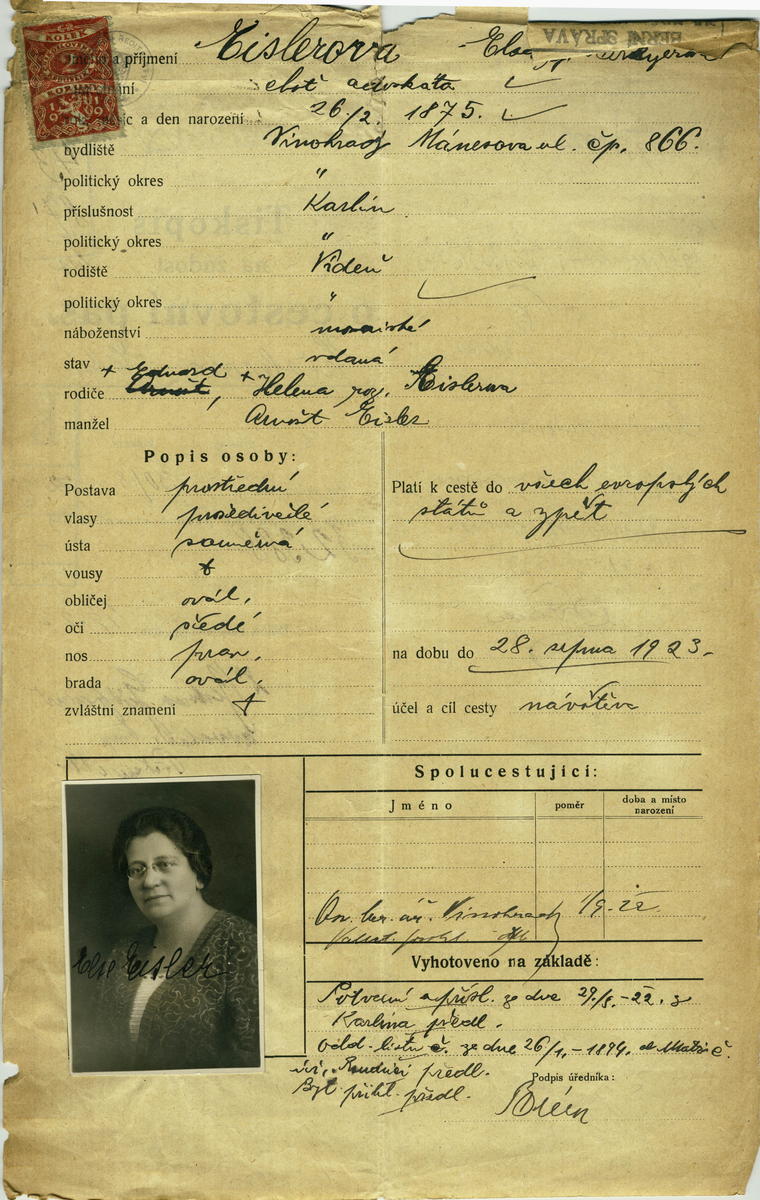 KOLEK
BERNÍ SPRÁVA
a příjmení Eislerova Else
advokáta
a den narození 26/2. 1875.
bydliště Vinohrady Mánesova ul. čp. 866.
politický okres "
příslušnost Karlín
politický okres "
rodiště Vídeň
politický okres "
náboženství mosaické
stav vdaná
+ Eduard
rodiče , + Helena roz. Eislerova
manžel Arnošt Eisler
Popis osoby:
Postava prostřední
vlasy prošedivělé
ústa souměrná
vousy
obličej ovál.
oči šedé
nos
brada ovál.
zvláštní znamení
Platí k cestě do všech evropských
států a zpět
na dobu do 28. srpna 1923.
účel a cíl cesty návštěva
Spolucestující:
Jméno poměr doba a místo
narození
Vinohrady 1/9. 22
Vyhotoveno na základě:
Potvrzení ze dne 29./8.-22. z
Karlína předl.
Odd. listu č. ze dne 26/1.-1894.
předl.
Byt. přihl. předl.
Podpis úředníka:
Else Eisler